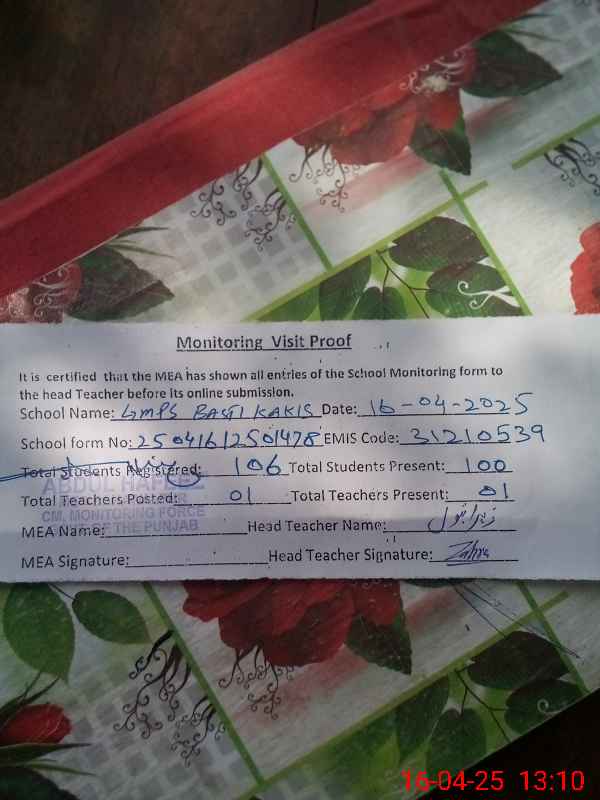 Monitoring Visit Proof
It is certified that the MEA has shown all entries of the School Monitoring form to
the head Teacher before its online submission.
School Name: GMPS BASTI KAKIS Date: 16-04-2025
School form No: 25041612501478 EMIS Code: 31210539
Total Students Registered: 106 Total Students Present: 100
ABDUL
Total Teachers Posted: 01 Total Teachers Present: 01
CM. MONITORING FORCE
MEA Name: Head Teacher Name: زہرا بتول
OF THE PUNJAB
MEA Signature: Head Teacher Signature: Zahra
16-04-25 13:10